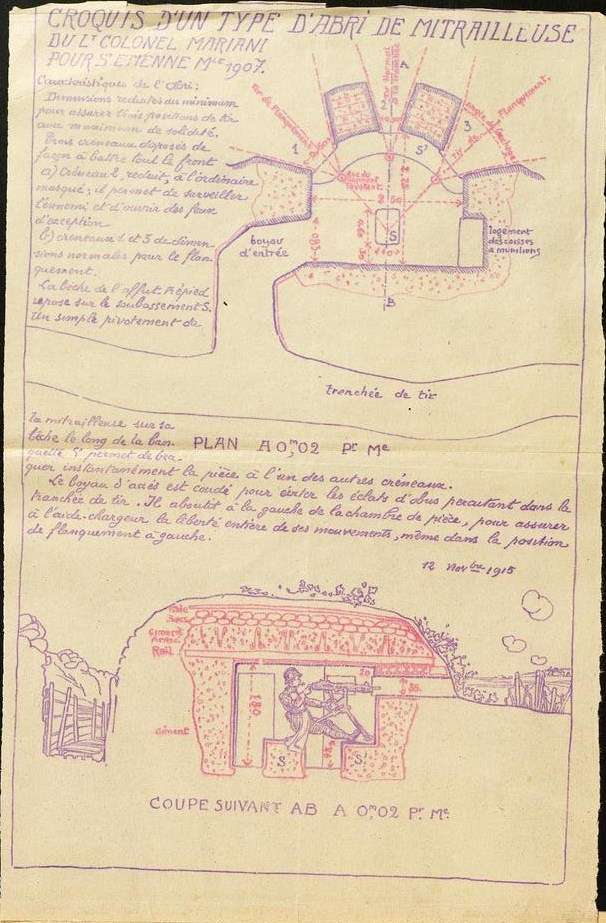 CROQUIS D'UN TYPE D'ABRI DE MITRAILLEUSE
DU Lt COLONEL MARIANI
POUR St ETIENNE Mle 1907.
Caractéristiques de l'Abri:
Dimensions réduites au minimum
pour assurer trois positions de tir
avec maximum de solidité.
Trois créneaux disposés de
façon à battre tout le front
a) Créneau 2, réduit, à l'ordinaire
masqué; il permet de surveiller
l'ennemi et d'ouvrir des feux
d'exception
b) créneaux 1 et 3 de dimen-
sions normales pour le flan-
quement.
La bêche de l'affût trépied
repose sur le soubassement S.
Un simple pivotement de
A
Tir Normal
à la tranchée
Tir de Flanquement
Tir de Flanquement
1
2
3
S'
S
2 50
boyau
d'entrée
logement
des caisses
à munitions
B
tranchée de tir
la mitrailleuse sur sa
bêche le long de la ban-
quette S' permet de bra-
quer instantanément la pièce à l'un des autres créneaux.
PLAN A 0m,02 Pr Me
Le boyau d'accès est coudé pour éviter les éclats d'obus percutant dans la
tranchée de tir. Il aboutit à la gauche de la chambre de pièce, pour assurer
à l'aide-chargeur la liberté entière de ses mouvements, même dans la position
de flanquement à gauche.
12 Novbre 1915
Tôle
Sacs
Ciment
Armé
Rail
ciment
1.80
20
35
S
S'
COUPE SUIVANT AB A 0m,02 Pr Me